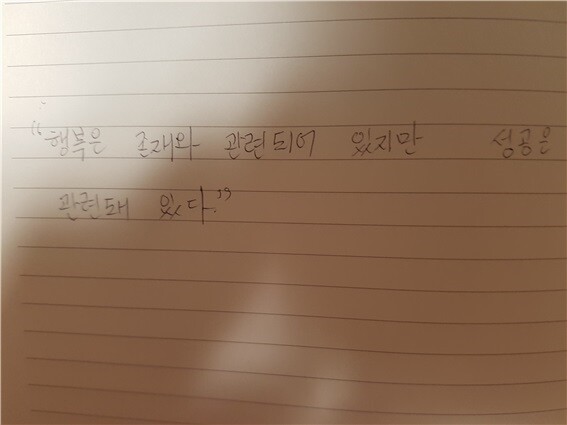 “행복은 존재와 관련되어 있지만 성공은
관련돼 있다.”